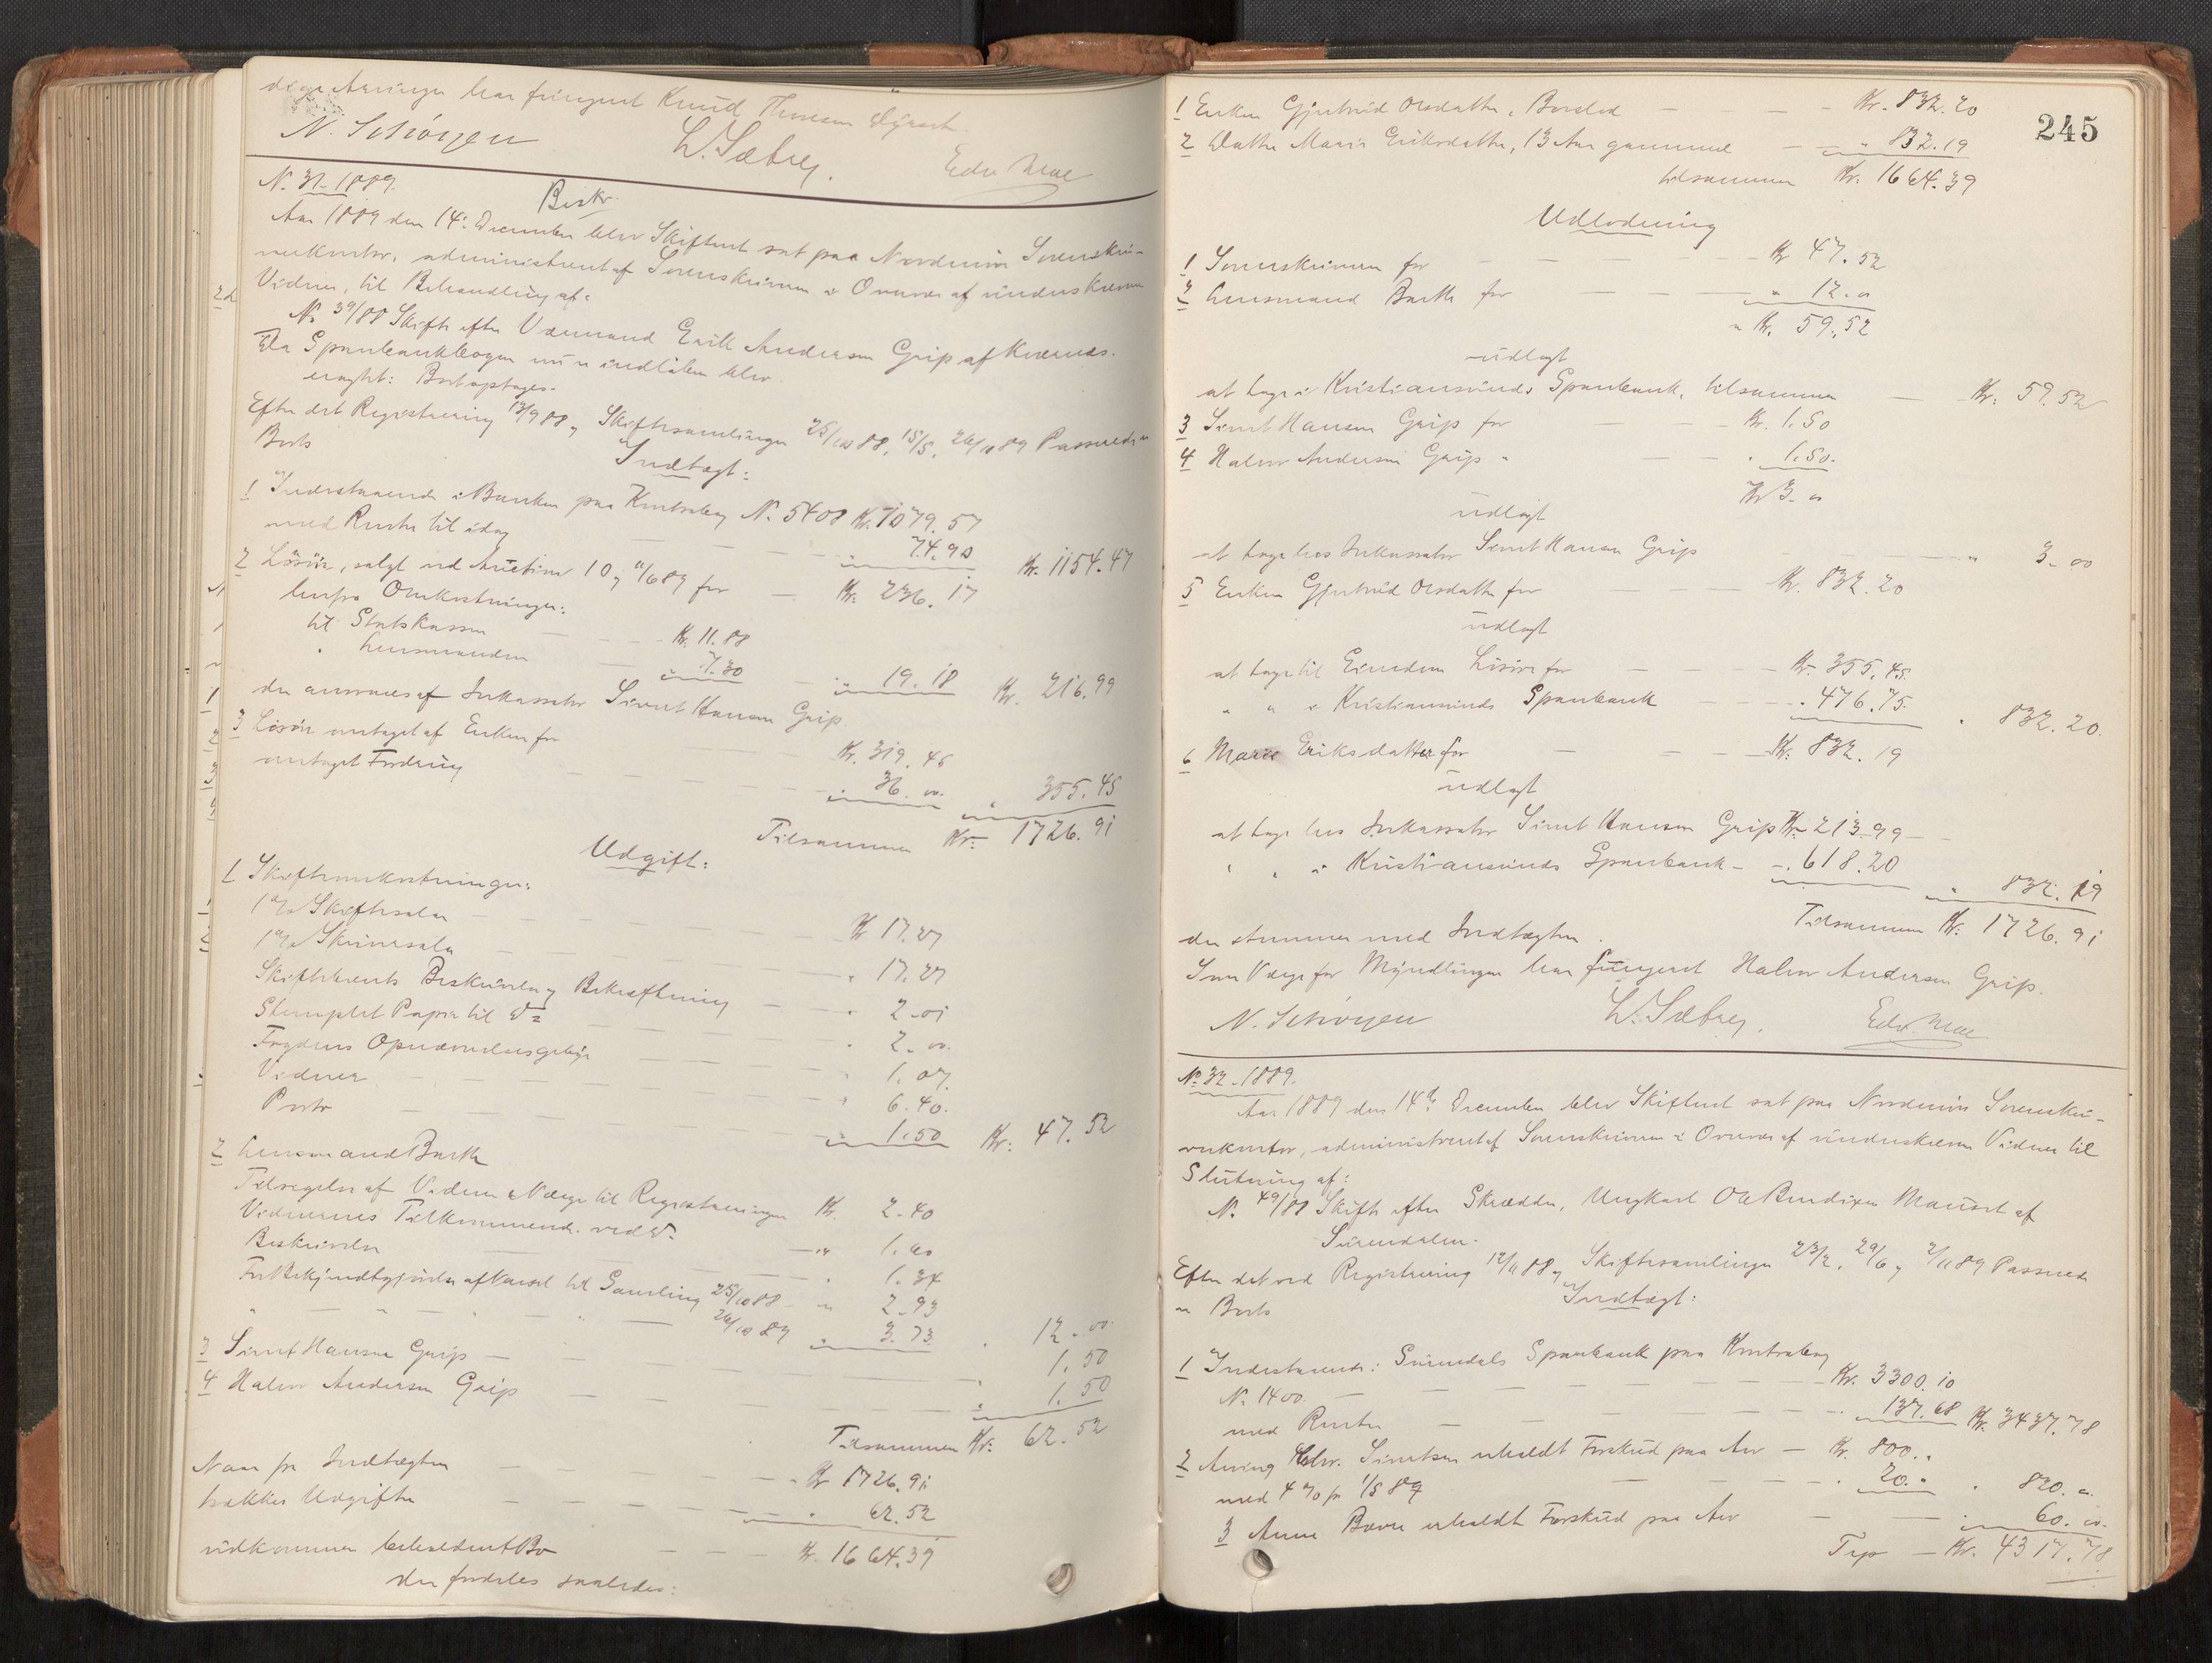 dige Arvinger har fungeret Knud Thoresen
N. Schörgen W. Sæbrey. Edv. Moe
N. 31-1889.
Beskr.
Aar 1889 den 14: December blev Skifteret sat paa Nordmör Sorenskri-
verkontor, administreret af Sorenskriveren i Overvær af underskrevne
Vidner, til Behandling af:
N. 39/88 Skifte efter Eril Andersen Grip af Kvernes.
Da Sparebankbogen nu er indlöben blev
eragtet: Boet optages.
Efter det Registrering 12/9 88 og Skiftesamlinger 25/10 88, 15/5, 26/11 89 Passerede er
Boets
Indtægt:
1 Indestaaende i Banken paa Kontrabog N. 5408 Kr. 1079.57
med Renter til idag " 74.90 Kr. 1154.47
2 Lösöre, solgt ved Auction 10 og 11/6 89 for Kr. 236.17
herfra Omkostninger:
til Statskassen Kr. 11.88
" Lensmanden " 7.30 " 19.18 Kr. 216.99
der ansvares af Inkassator Sivert Hansen Grip.
3 Lösöre modtaget af Enken for Kr. 319.45
modtaget Fordring " 36.00 " 355.45
Tilsammen Kr. 1726.91
Udgift:
1 Skifteomkostninger:
1% Skiftesalær Kr 17.27
1% Skriversalær " 17.27
Skiftebrevets Beskrivelse og Bekræftning " 2.01
Stemplet Papir til Do " 2.00
Fogdens Opnævnelsesgebyr " 1.07
Vidner " 6.40
Porto " 1.50 Kr: 47.52
2 Lensmand Barth
Tilsigelse af Vidner & Værge til Registreringen Kr. 2.40
Vidnernes Tilkommende ved Do " 1.60
Beskrivelse " 1.34
For Bekjendtgjörelse af Varsel til Samling 25/10 88 " 2.93
" — " — " — 26/10 89 " 3.73 " 12.00
3 Sivert Hansen Grip " 1.50
4 Halvor Andersen Grip " 1.50
Tilsammen Kr: 62.52
Naar fra Indtægten Kr 1726.91
trækkes Udgiften " 62.52
udkommer beholdent Bo Kr. 1664.39
der fordeles saaledes:
245
1 Enken Gjertrud Olsdatter, Boeslod Kr. 832.20
2 Datter Marie Eriksdatter, 13 Aar gammel " 832.19
tilsammen Kr. 1664.39
Udlodning
1 Sorenskriveren for Kr 47.52
2 Lensmand Barth for " 12."
" Kr. 59.52
udlagt
at tage i Kristiansunds Sparebank, tilsammen Kr: 59.52
3 Sivert Hansen Grip for Kr. 1.50
4 Halvor Andersen Grip " " 1.50.
Kr 3."
udlagt
at tage hos Inkassator Sivert Hansen Grip " 3.00
5 Enken Gjertrud Olsdatter for Kr. 832.20
udlagt
at tage til Eiendom Lösöre for Kr. 355.45.
" " i Kristiansunds Sparebank " 476.75. " 832.20.
6 Marie Eriksdatter for Kr: 832.19
udlagt
at tage hos Inkassator Sivert Hansen Grip Kr 213.99
" " i Kristiansunds Sparebank " 618.20 " 832.19
Tilsammen Kr: 1726.91
der stemmer med Indtægten.
Som Værge for Myndlingen har fungeret Halvor Andersen Grip.
N. Schörgen W. Sæbrey. Edv. Moe
No 32-1889.
Aar 1889 den 14de December blev Skifteret sat paa Nordmör Sorenskri-
verkontor, administreret af Sorenskriveren i Overvær af underskrevne Vidner til
Slutning af:
N. 49/88 Skifte efter Skrædder, Ungkarl Ole Bendixen Mauset af
Surendalen.
Efter det ved Registrering 12/11 88 og Skiftesamlinger 23/2, 29/6 og 2/11 89 Passerede
er Boets Indtægt:
1 Indestaaende i Surendals Sparebank paa Kontrabog
N. 1400. Kr. 3300.10
med Renter " 137.68 Kr. 3437.78
2 Arving Halvr. Sivertsen erholdt Forskud paa Arv Kr. 800."
med 4% fra 1/5 89 " 20." " 820."
3 Anne Bævre erholdt Forskud paa Arv " 60.00
Trsp Kr. 4317.78